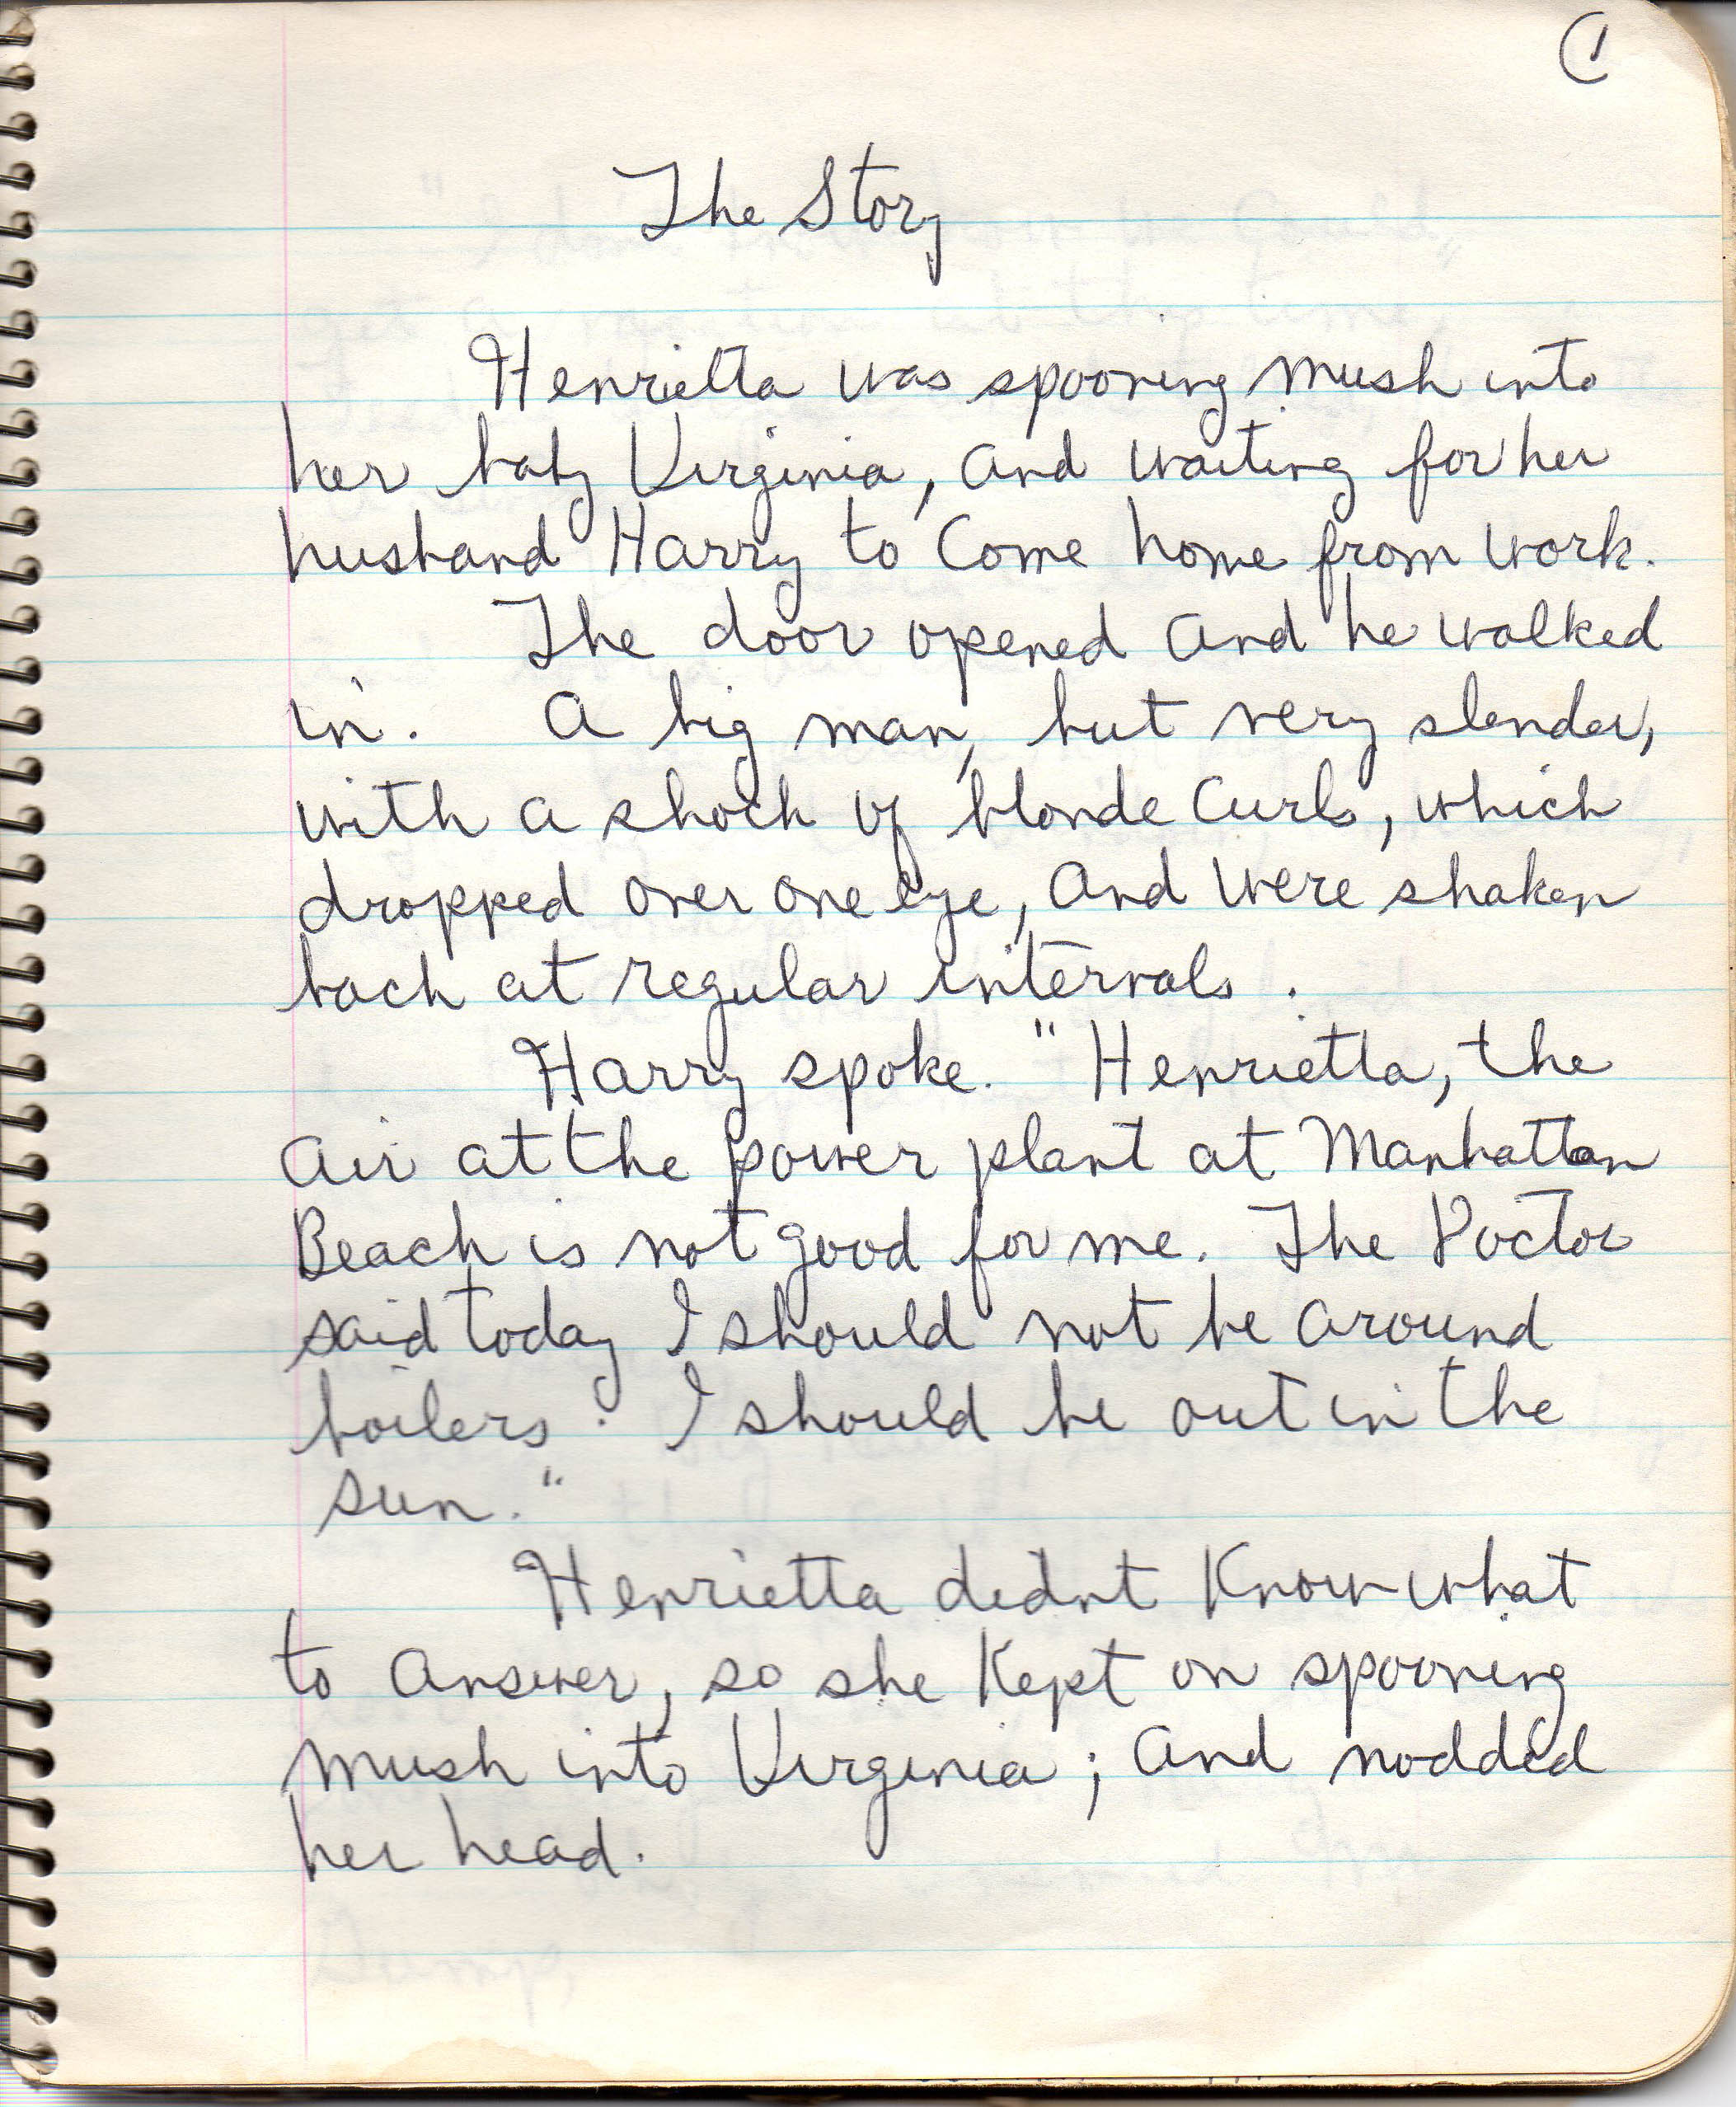 1
The Story
Henrietta was spooning mush into
her baby Virginia, and waiting for her
husband Harry to come home from work.
The door opened and he walked
in. A big man, but very slender,
with a shock of blonde curls, which
dropped over one eye, and were shaken
back at regular intervals.
Harry spoke. "Henrietta, the
air at the power plant at Manhattan
Beach is not good for me. The Doctor
said today I should not be around
boilers. I should be out in the
sun."
Henrietta didnt know what
to answer, so she kept on spooning
mush into Virginia; and nodded
her head.